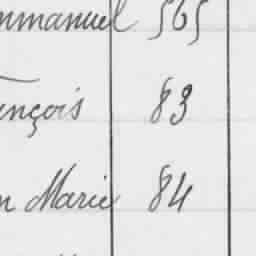 mmanuel 565
ançois 83
n Marie 84